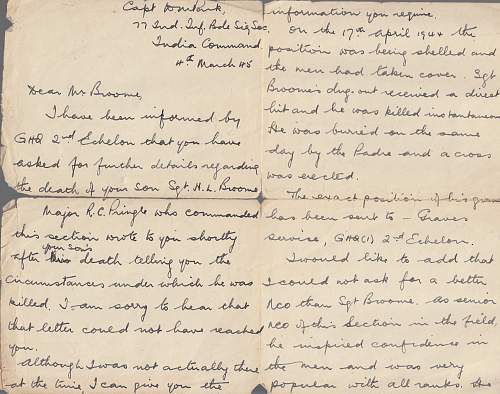 Capt
77 Ind. Inf. Bde Sig Sec.
India Command
4th March 45
Dear Mr Broome,
I have been informed by
GHQ 2nd Echelon that you have
asked for further details regarding
the death of your son Sgt. H.L. Broome
Major R.C. Pringle who commanded
this section wrote to you shortly
after your son's death telling you the
circumstances under which he was
killed. I am sorry to hear that
that letter could not have reached
you.
Although I was not actually there
at the time, I can give you the
information you require.
On the 17th April 1944 the
position was being shelled and
the men had taken cover. Sgt
Broome's dug-out received a direct
hit and he was killed instantaneous
He was buried on the same
day by the Padre and a cross
was erected.
The exact position of his grave
has been sent to - Graves
service, GHQ(I) 2nd Echelon.
I would like to add that
I could not ask for a better
NCO than Sgt Broome. As senior
NCO of this Section in the field,
he inspired confidence in
the men and was very
popular with all ranks. He